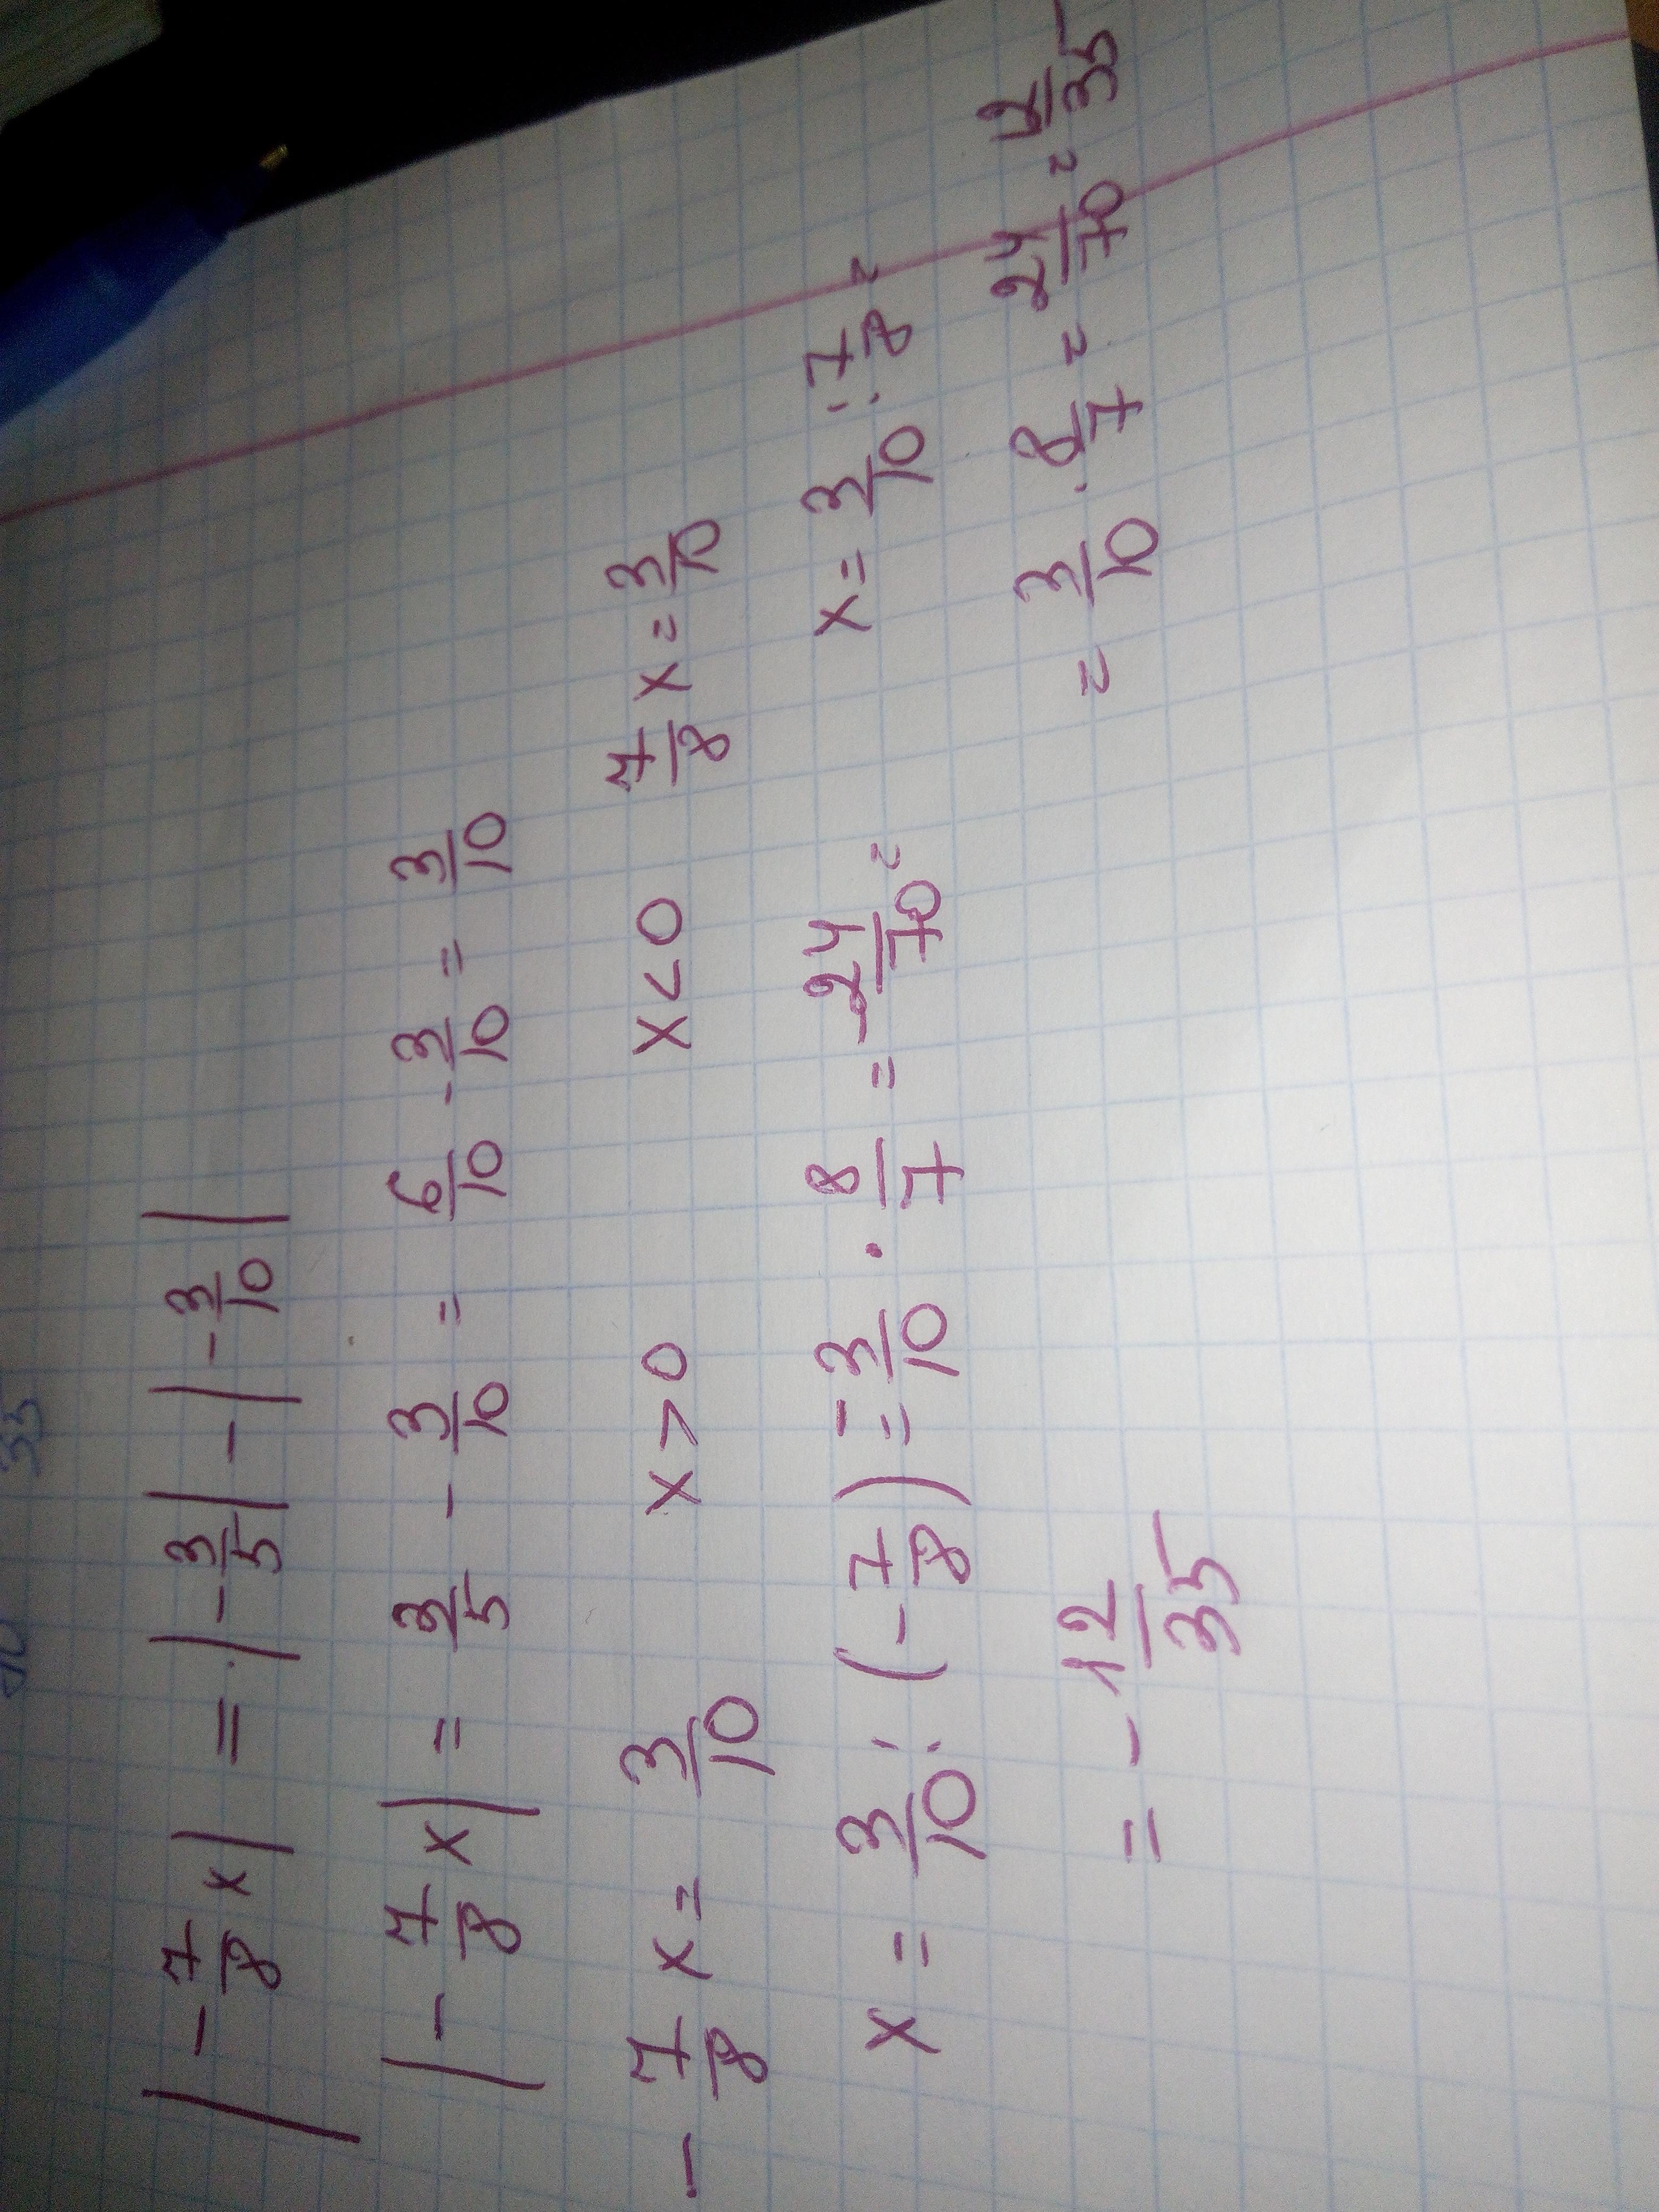 |-7/8 x| = |-3/5| - |-3/10|
|-7/8 x| = 3/5 - 3/10 = 6/10 - 3/10 = 3/10
-7/8 x = 3/10 x>0 x<0 7/8 x = 3/10
x = 3/10 : (-7/8) = -3/10 · 8/7 = -24/70 = x = 3/10 : 7/8 =
= -12/35 = 3/10 · 8/7 = 24/70 = 12/35